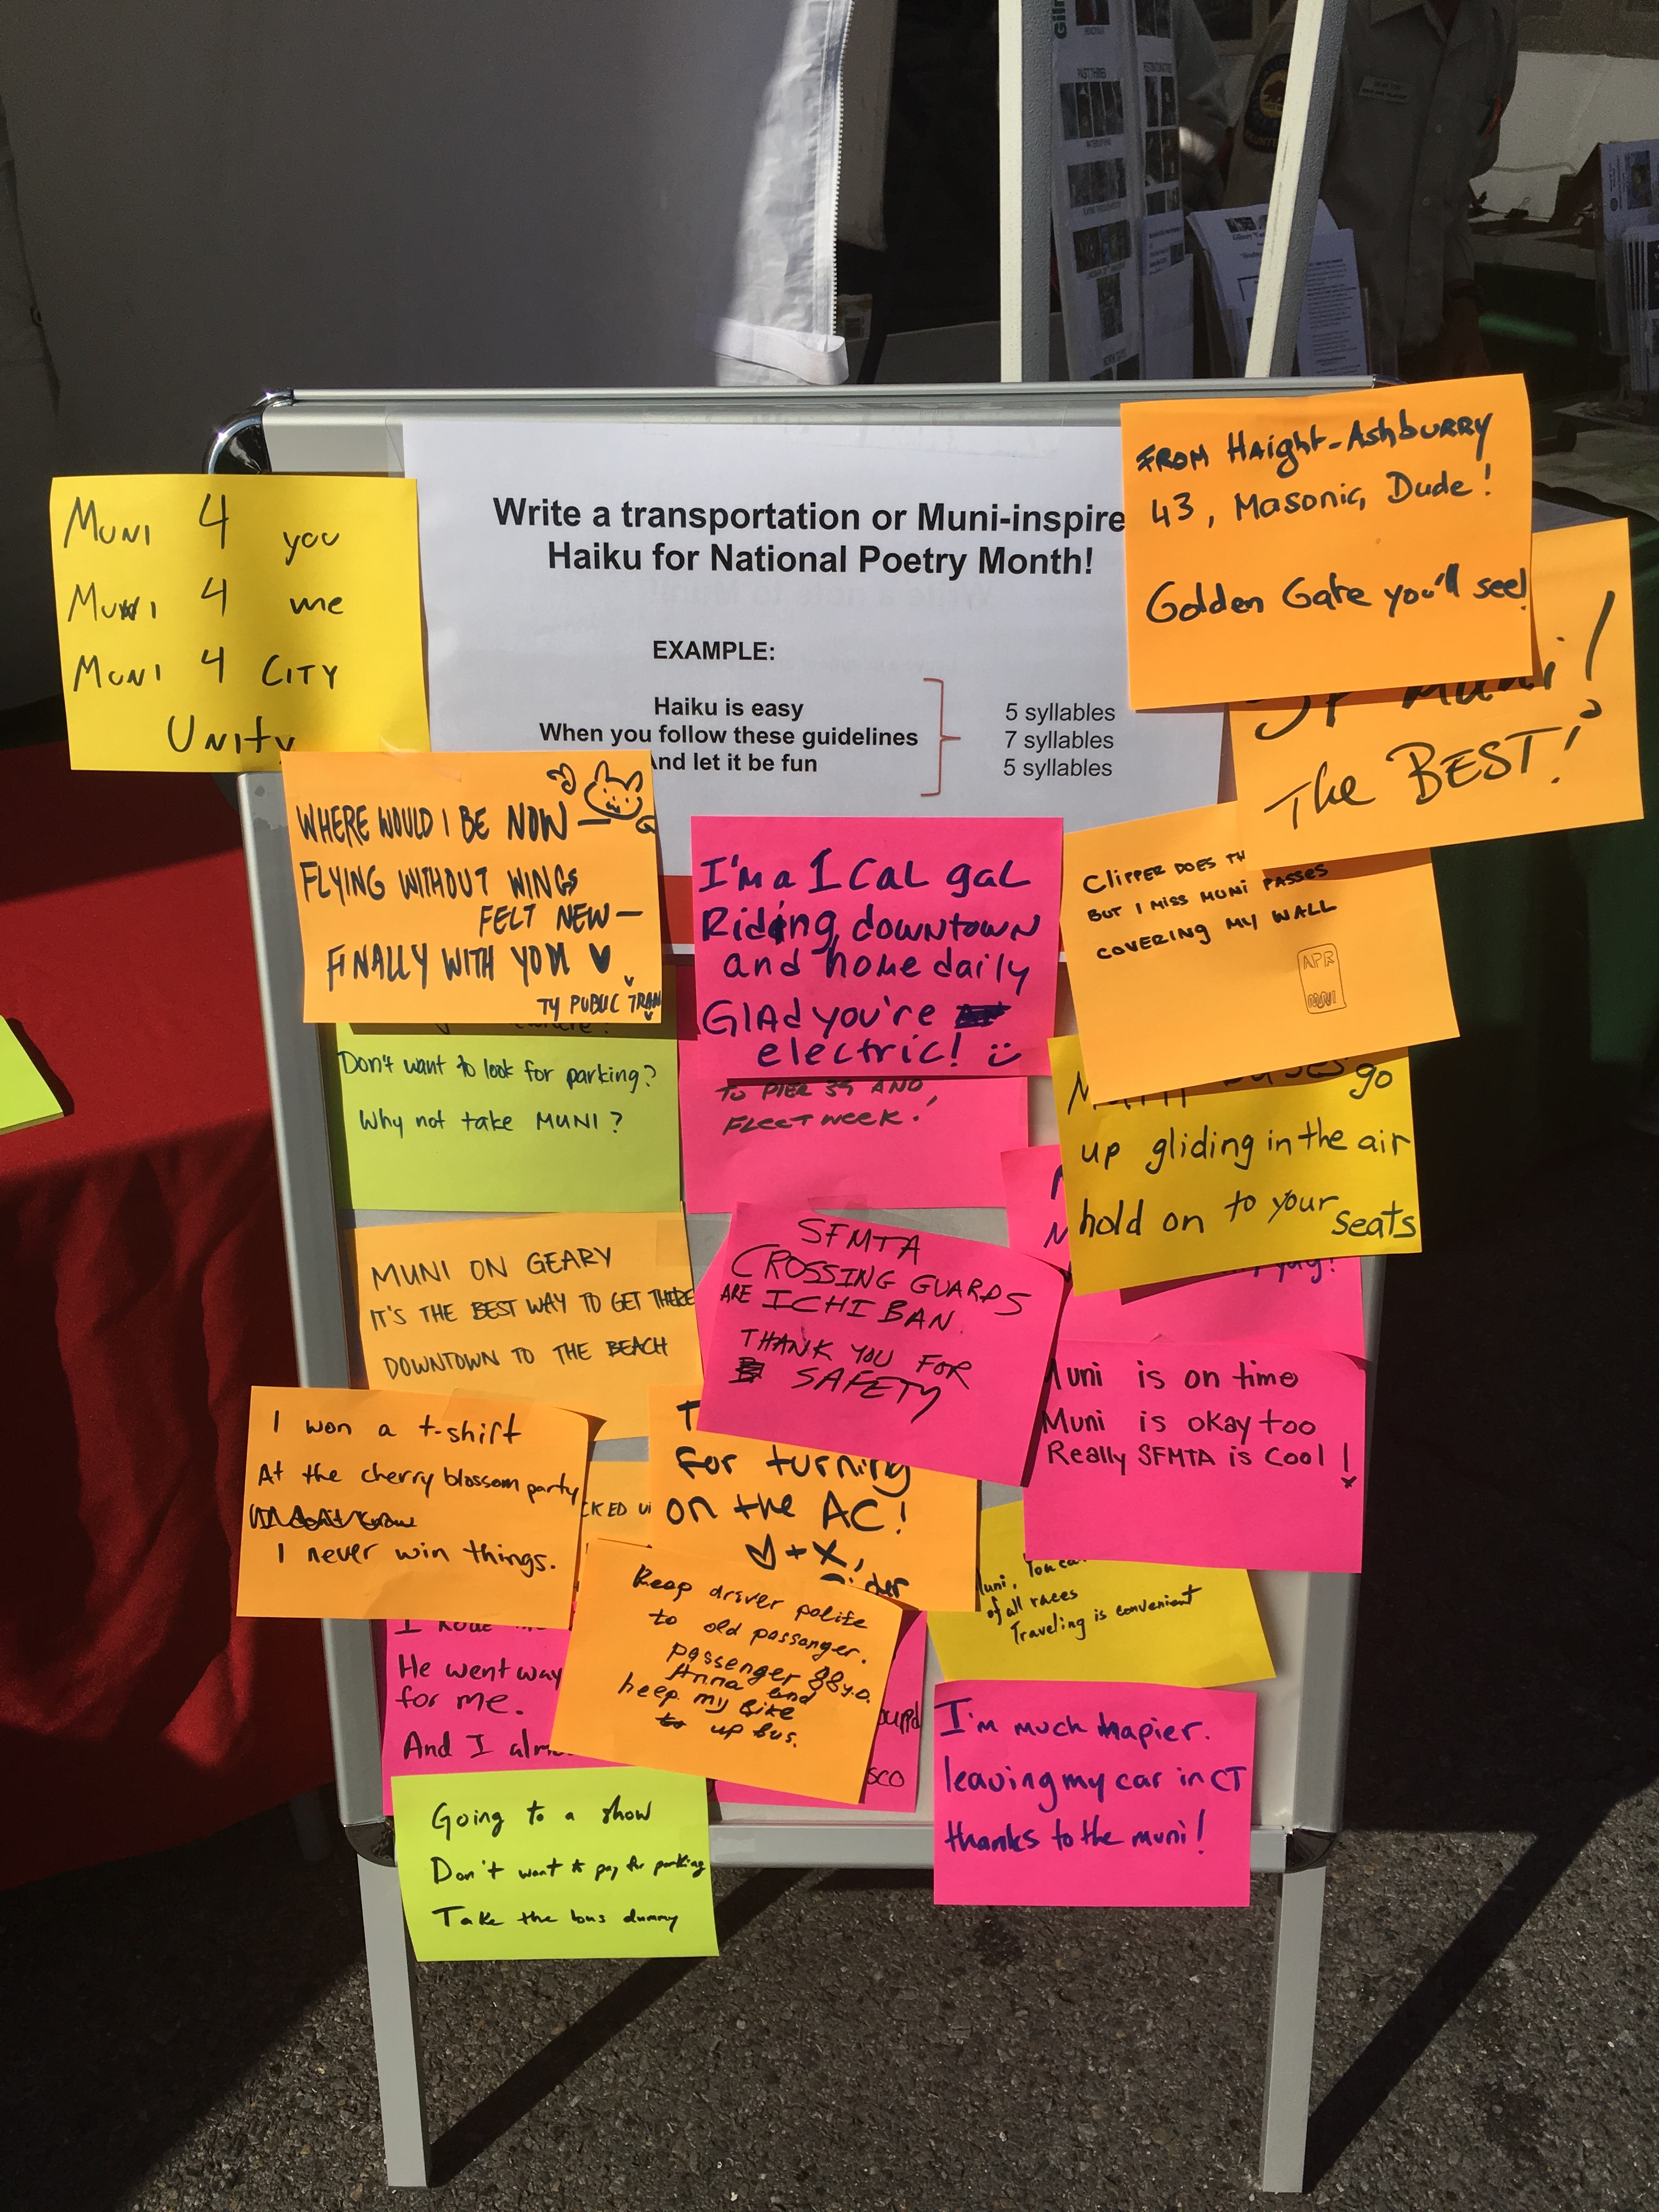 Write a transportation or Muni-inspire
Haiku for National Poetry Month!
EXAMPLE:
Haiku is easy
When you follow these guidelines
And let it be fun
5 syllables
7 syllables
5 syllables
FROM Haight-Ashburry
43, Masonic, Dude!
Golden Gate you'll see!
Muni 4 you
Muni 4 me
Muni 4 City
Unity
SF Muni!
The BEST!
WHERE WOULD I BE NOW—
FLYING WITHOUT WINGS
FELT NEW—
FINALLY WITH YOU
TY PUBLIC TRAN
I'm a 1 Cal gal
Riding downtown
and home daily
Glad you're
electric!
CLIPPER DOES TH
BUT I MISS MUNI PASSES
COVERING MY WALL
APR
MUNI
Don't want to look for parking?
Why not take MUNI?
TO PIER 39 AND
FLEET WEEK!
go
up gliding in the air
hold on to your
seats
MUNI ON GEARY
IT'S THE BEST WAY TO GET THERE
DOWNTOWN TO THE BEACH
SFMTA
CROSSING GUARDS
ARE ICHIBAN.
THANK YOU FOR
SAFETY
Muni is on time
Muni is okay too
Really SFMTA is Cool!
I won a t-shirt
At the cherry blossom party
I never win things.
CKED
for turning
on the AC!
Keep driver polite
to old passanger.
passenger 88 y.o.
Anna and
keep my Bike
to up bus.
of all races
Traveling is convenient
I rode
He went way
for me.
And I
SCO
I'm much hapier.
leaving my car in CT
thanks to the muni!
Going to a show
Don't want to pay for parking
Take the bus dummy